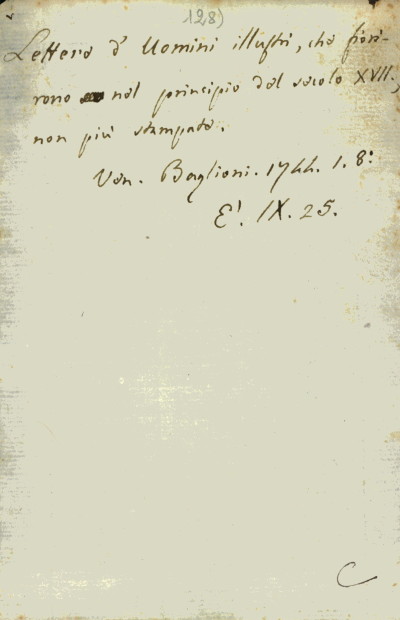 128)
Lettere d' Uomini illustri, che fiori-
rono nel principio del secolo XVII.,
non più stampate.
Ven. Baglioni. 1744. 1. 8:
E'. IX. 25.
C